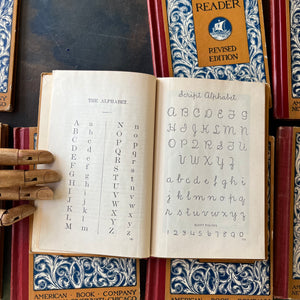 READER
REVISED
EDITION
THE ALPHABET
A a N n
B b O o
C c P p
D d Q q
E e R r
F f S s
G g T t
H h U u
I i V v
J j W w
K k X x
L l Y y
M m Z z
Script Alphabet
A B C D E F G
H I J K L M N
O P Q R S T U
V W X Y Z
a b c d e f g h i
j k l m n o p q
r s t u v w x y z
1 2 3 4 5 6 7 8 9 0
AMERICAN · BOOK · COMPANY
CHICAGO
AMERICAN · BOOK · COMPANY
CHICAGO